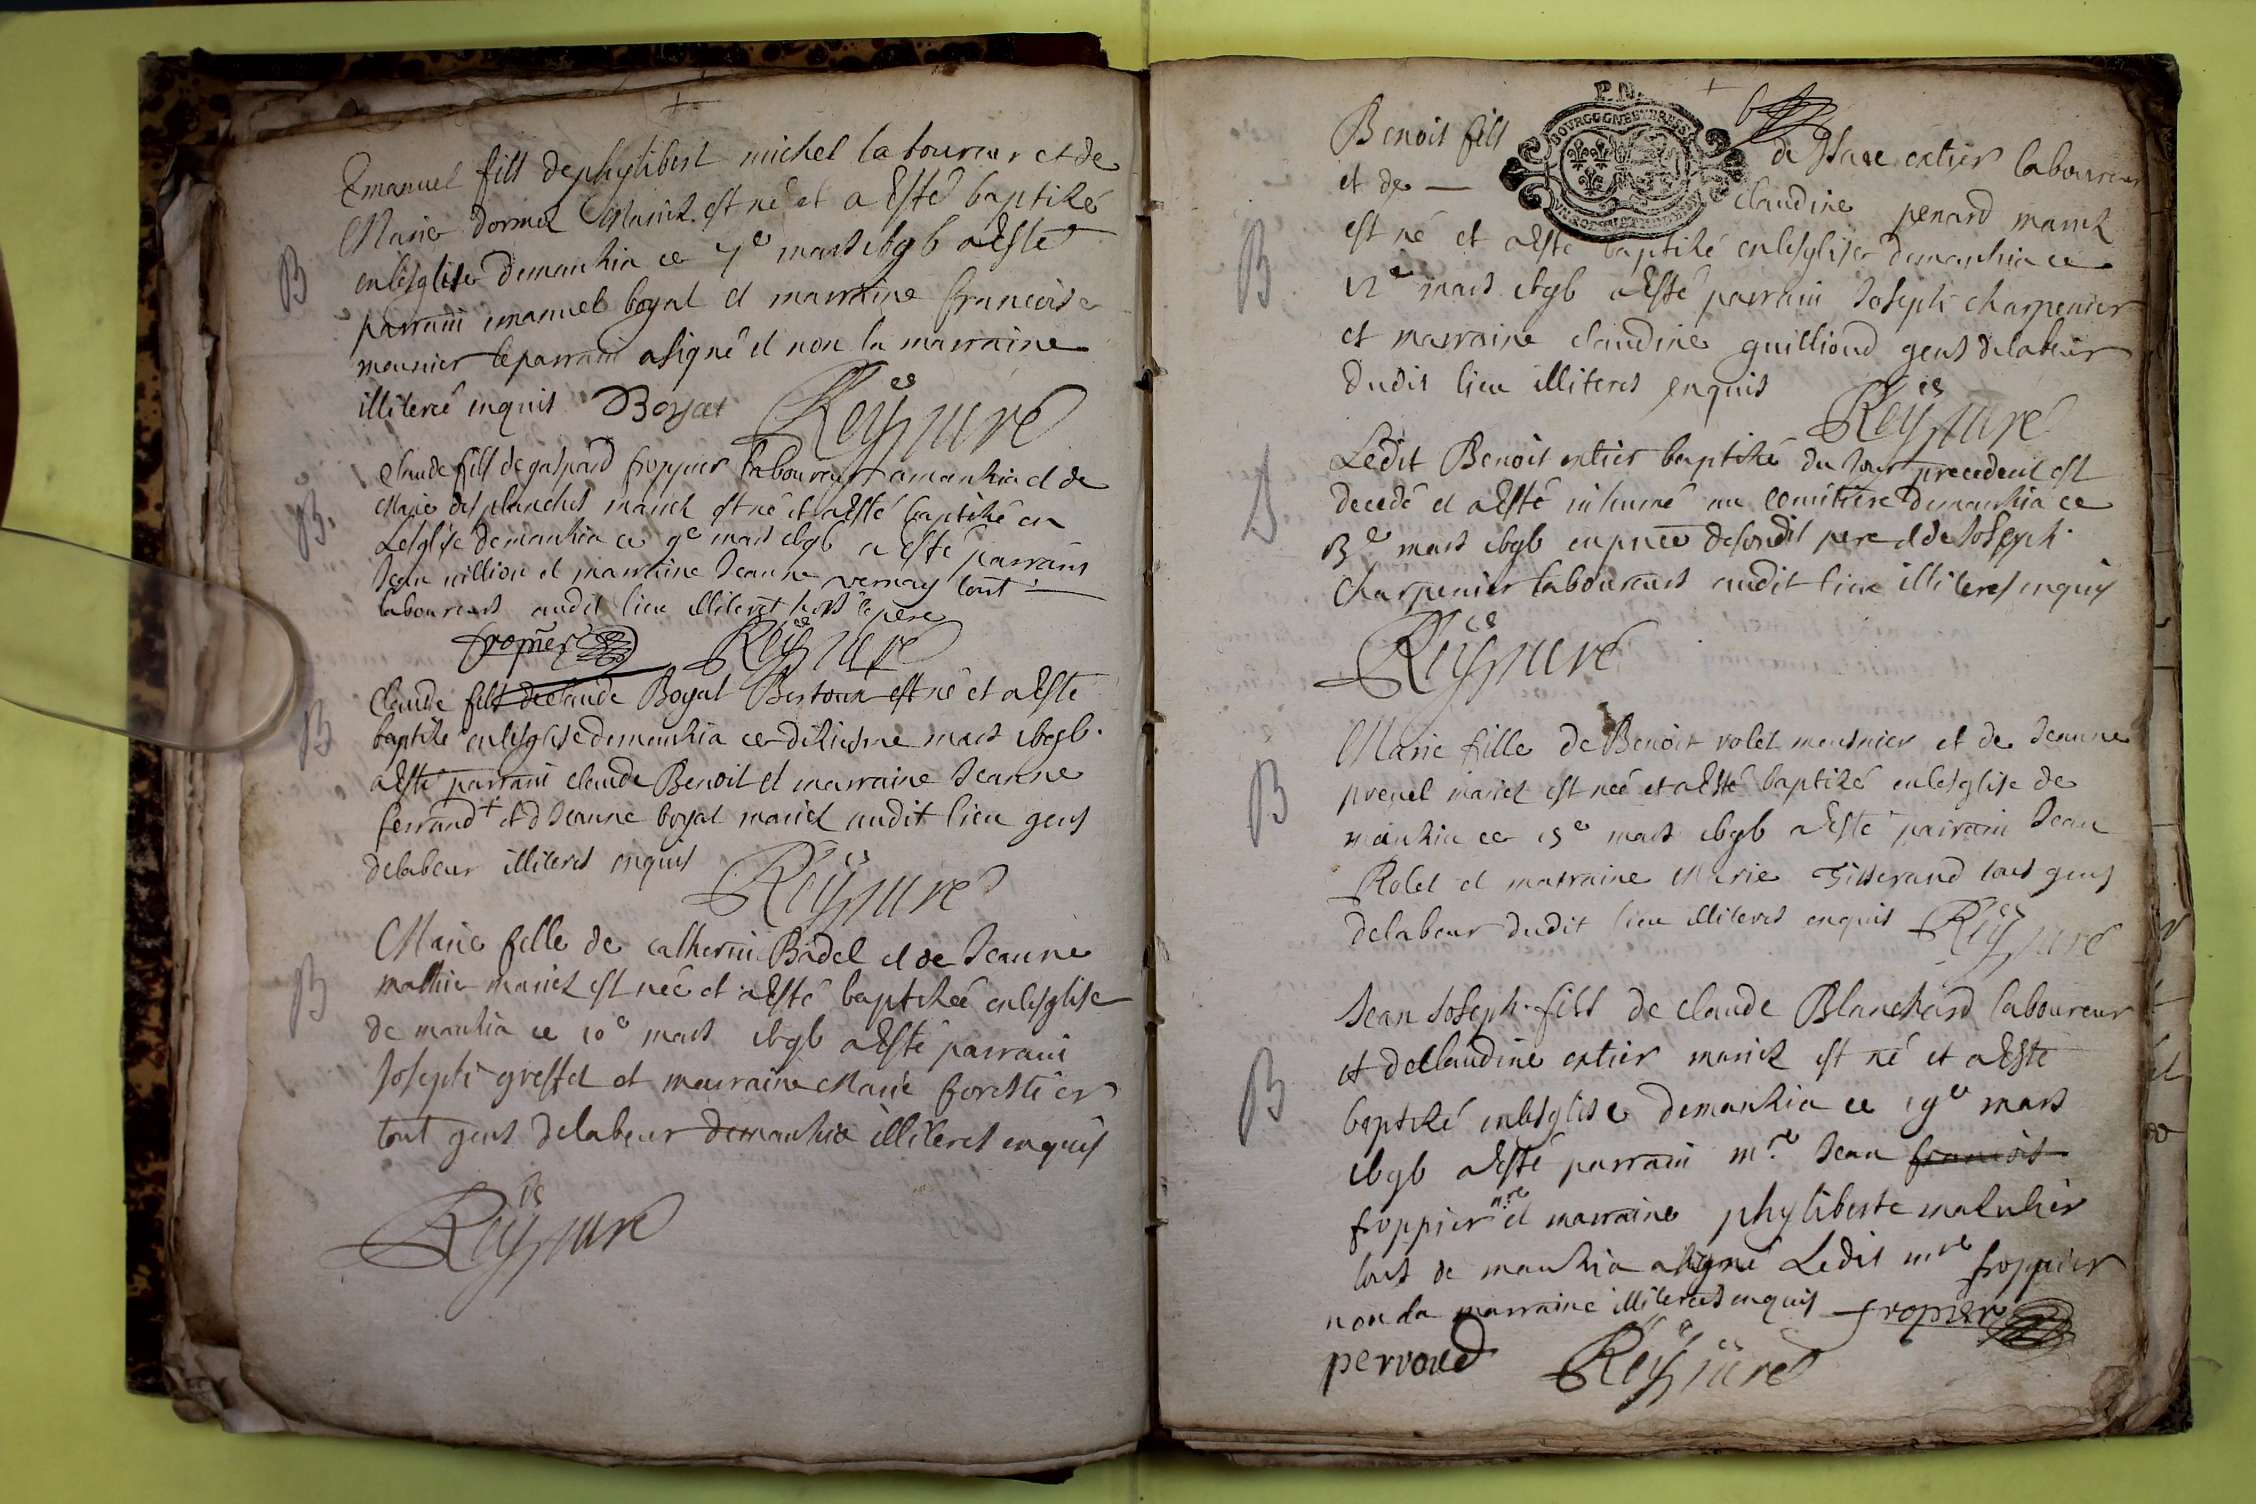 Emanuel fills de phylibert michel laboureur et de
Marie dormel mariez est né et a Esté baptizé
en lesglise demanzia ce 7e mars ibgb a Esté
parrain emanuel boyat et marraine francoise
meunier le parrain a signé et non la marraine
illiteré enquis Boyat Reÿ curé
B
Claude fills de gaspard froppier laboureur a manzia et de
Marie des planches mariez est né et a Esté baptizé en
Lesglise demanzia ce 9e mars ibgb a esté parrain
Jean million et marraine Jeanne vernay tout
laboureurs audit lieu illiteret hors le pere
fropier Reÿ curé
B.
Claude fills de claude Boyat Bertoux est né et a Esté
baptizé en lesglise demanzia ce diziesme mars ibgb.
a Esté parrain claude Benoit et marraine Jeanne
ferrand + et d Jeanne boyat mariez audit lieu gens
delabeur illiteres enquis Reÿ curé
B
Marie fille de catherin Badel et de Jeanne
mathie mariez est née et a Esté baptizéé en lesglise
de manzia ce 10e mars ibgb a Esté parrain
Joseph greffet et marraine Marie forestier
tout gens delabeur demanzia illiteres enquis
Reÿ curé
B
P.N.
BOURGOGNE ET BRESSE
Benoit fills de Isaac extier laboureur
et de — claudine penard mariez
est né et a Esté baptizé en lesglise demanzia ce
12e mars ibgb a Esté parrain Joseph charpenier
et marraine claudine guilliond gens delabeur
dudit lieu illiteres enquis
Reÿ curé
B
Ledit Benoit extier baptizé du Jour precedent est
decedé et a Esté inhumé au cemitiere demanzia ce
13e mars ibgb en pnce desondit pere et de Joseph
charpenier laboureurs audit lieu illiteres enquis
Reÿ curé
Marie fille de Benoit rolet meusnier et de Jeanne
prevel mariez est néé et a Esté baptizé en lesglise de
manzia ce 15e mars ibgb a Esté parrain Jean
Rolet et marraine Marie Tisserand tous gens
delabeur dudit lieu illiteres enquis Reÿ curé
B
Jean Joseph fills de claude Blanchard laboureur
et de claudine extier mariez est né et a Esté
baptizé en lesglise demanzia ce 19e mars
ibgb a Esté parrain mre Jean francois
froppier nre et marraine phyliberte mathier
tous de manzia a signé Ledit mre froppier
non la marraine illiteres enquis fropier
pervoud Reÿ curé
B